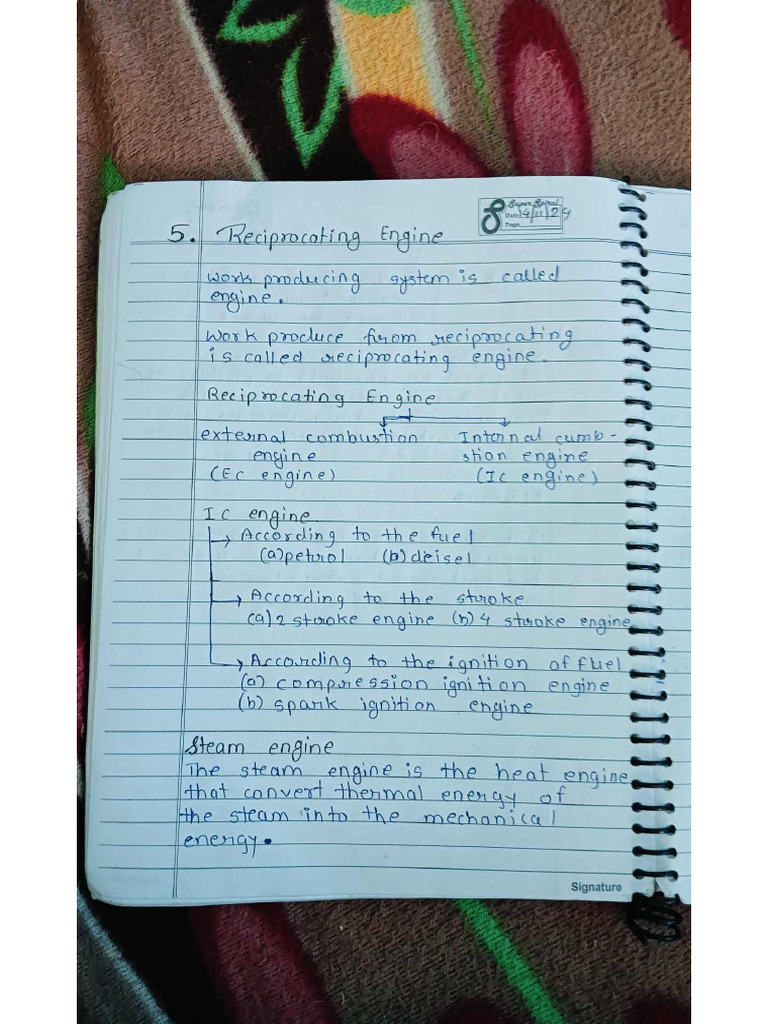 Super Spiral
Date 14/11/24
Page
5. Reciprocating Engine
work producing system is called
engine.
Work produce from reciprocating
is called reciprocating engine.
Reciprocating Engine
external combustion
engine
(EC engine)
Internal cumb-
stion engine
(IC engine)
IC engine
According to the fuel
(a) petrol (b) deisel
According to the stroke
(a) 2 stroke engine (b) 4 stroke engine
According to the ignition of fuel
(a) compression ignition engine
(b) spark ignition engine
Steam engine
The steam engine is the heat engine
that convert thermal energy of
the steam into the mechanical
energy.
Signature